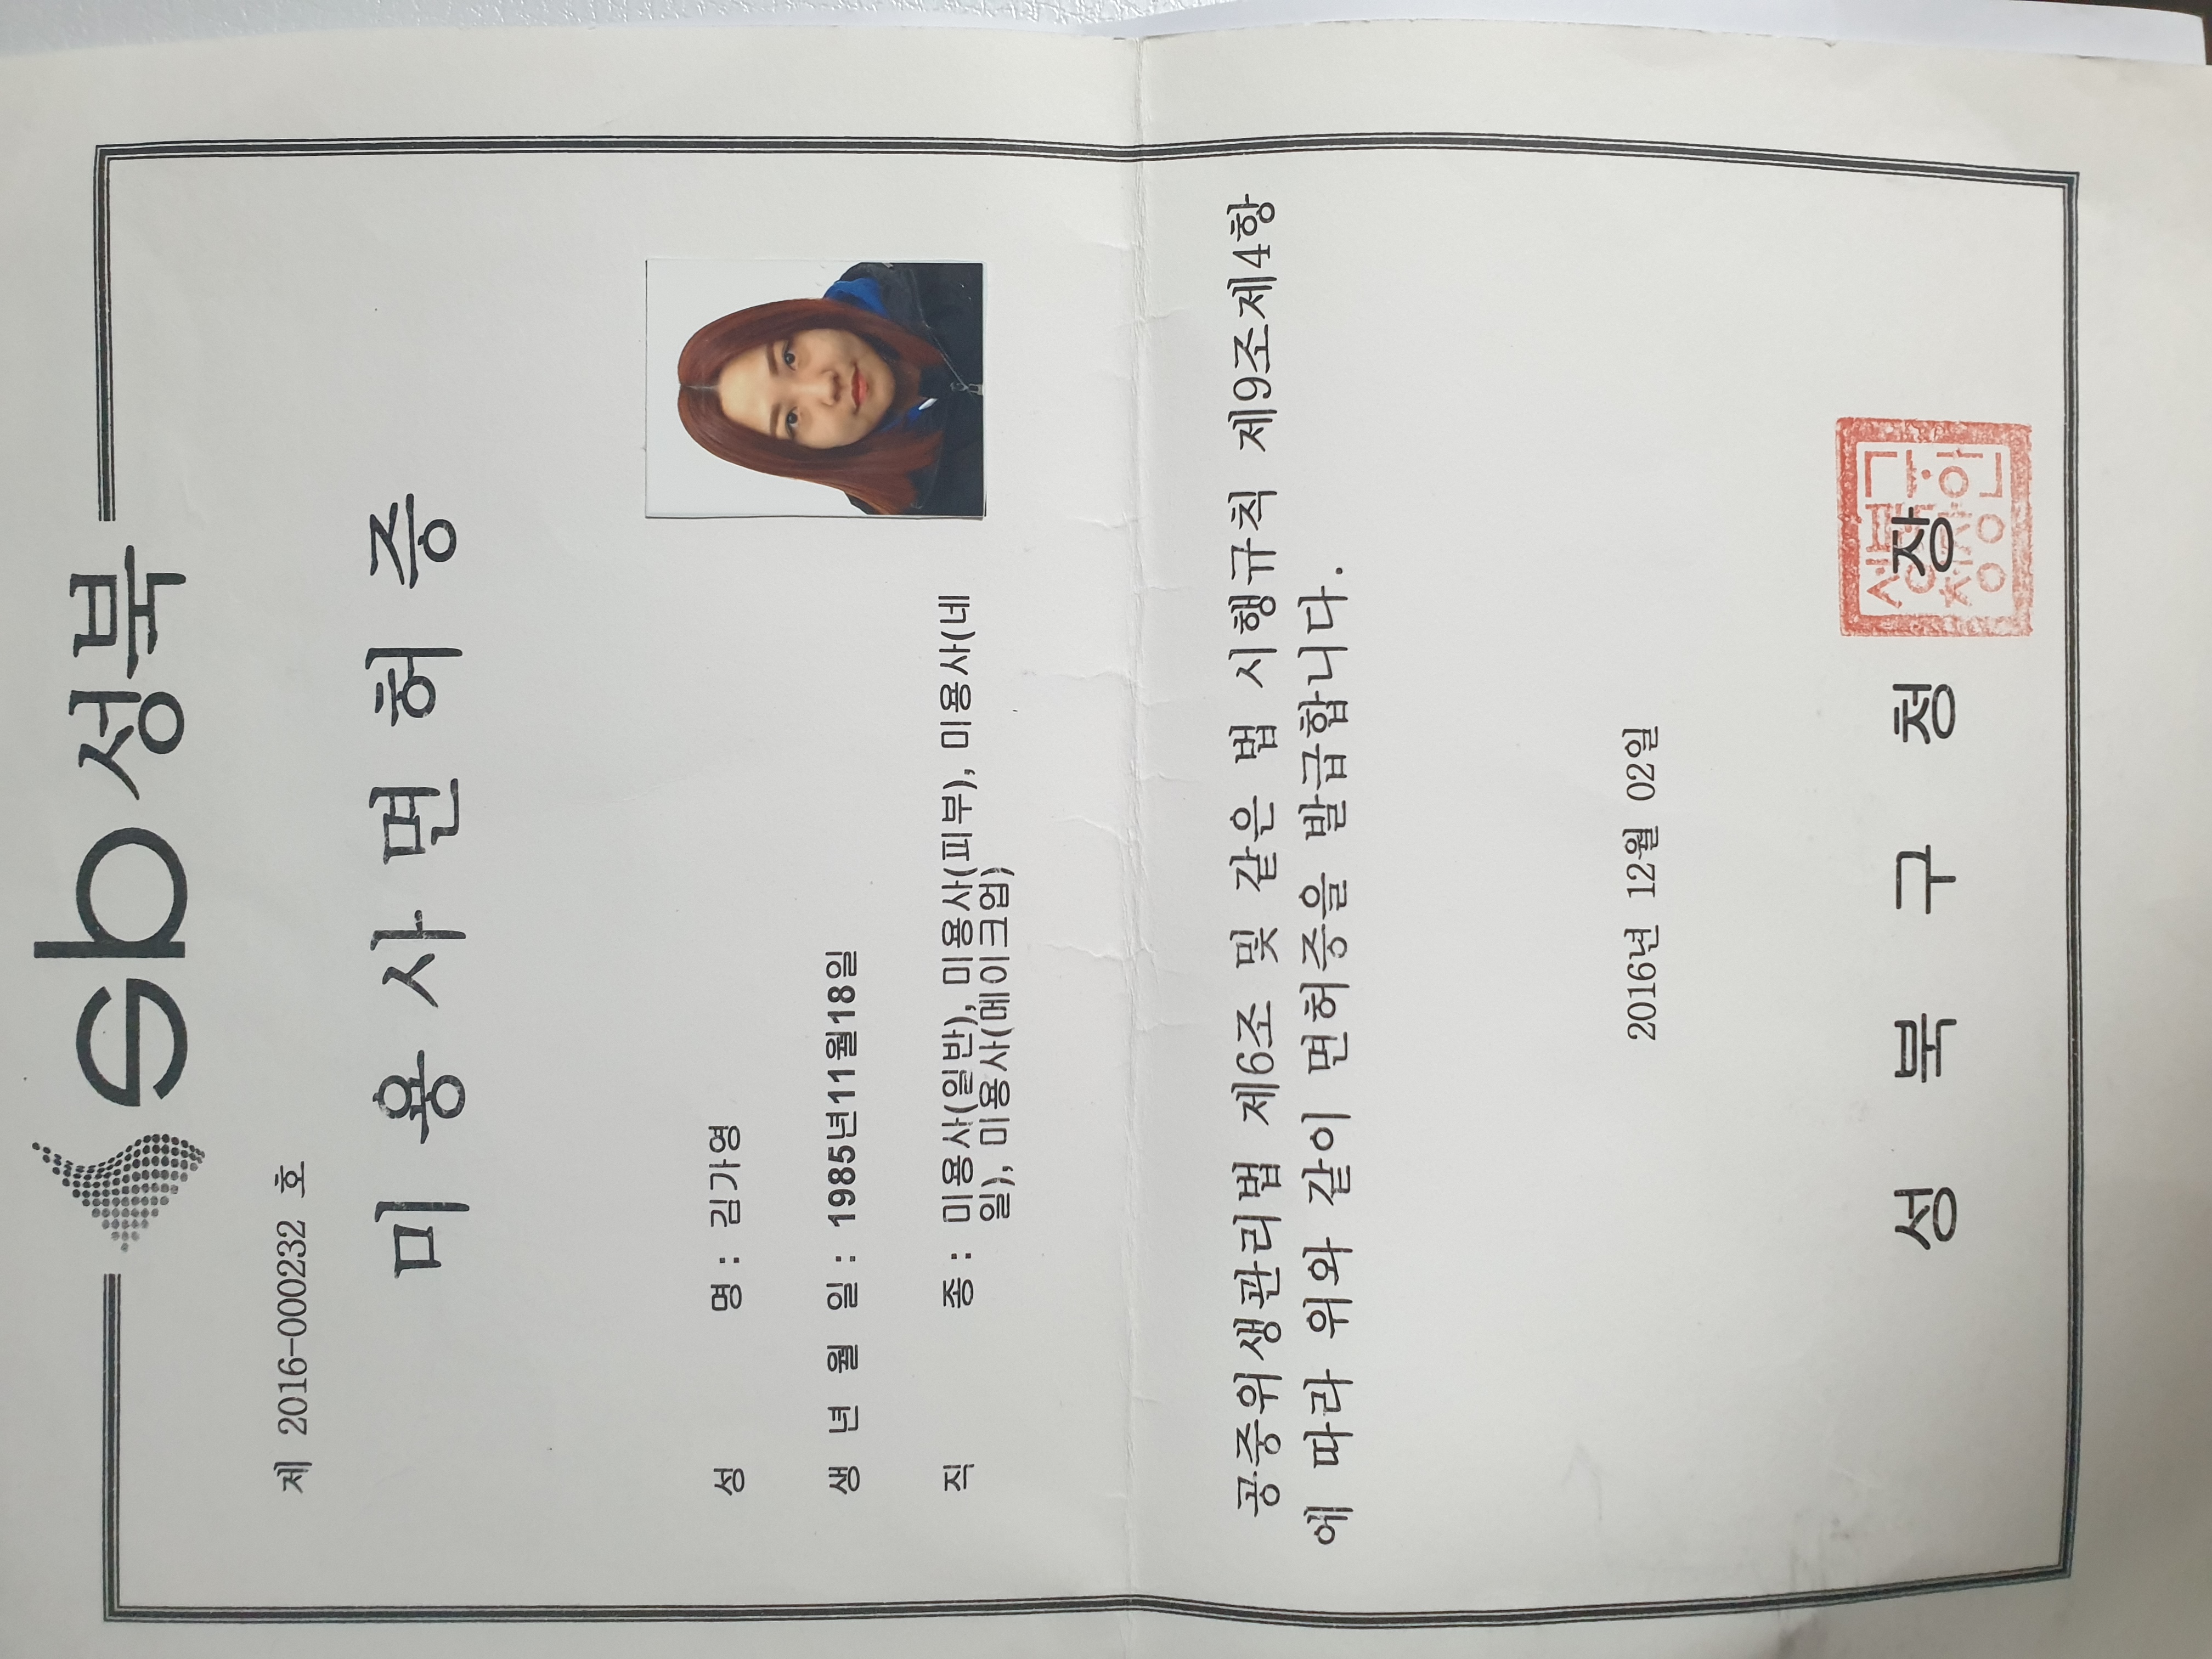 sb 성북
제 2016-000232 호
미 용 사 면 허 증
성 명 : 김가영
생 년 월 일 : 1985년11월18일
직 종 : 미용사(일반), 미용사(피부), 미용사(네
일), 미용사(메이크업)
공중위생관리법 제6조 및 같은 법 시행규칙 제9조제4항
에 따라 위와 같이 면허증을 발급합니다.
2016년 12월 02일
성 북 구 청 장
성북구
청장인